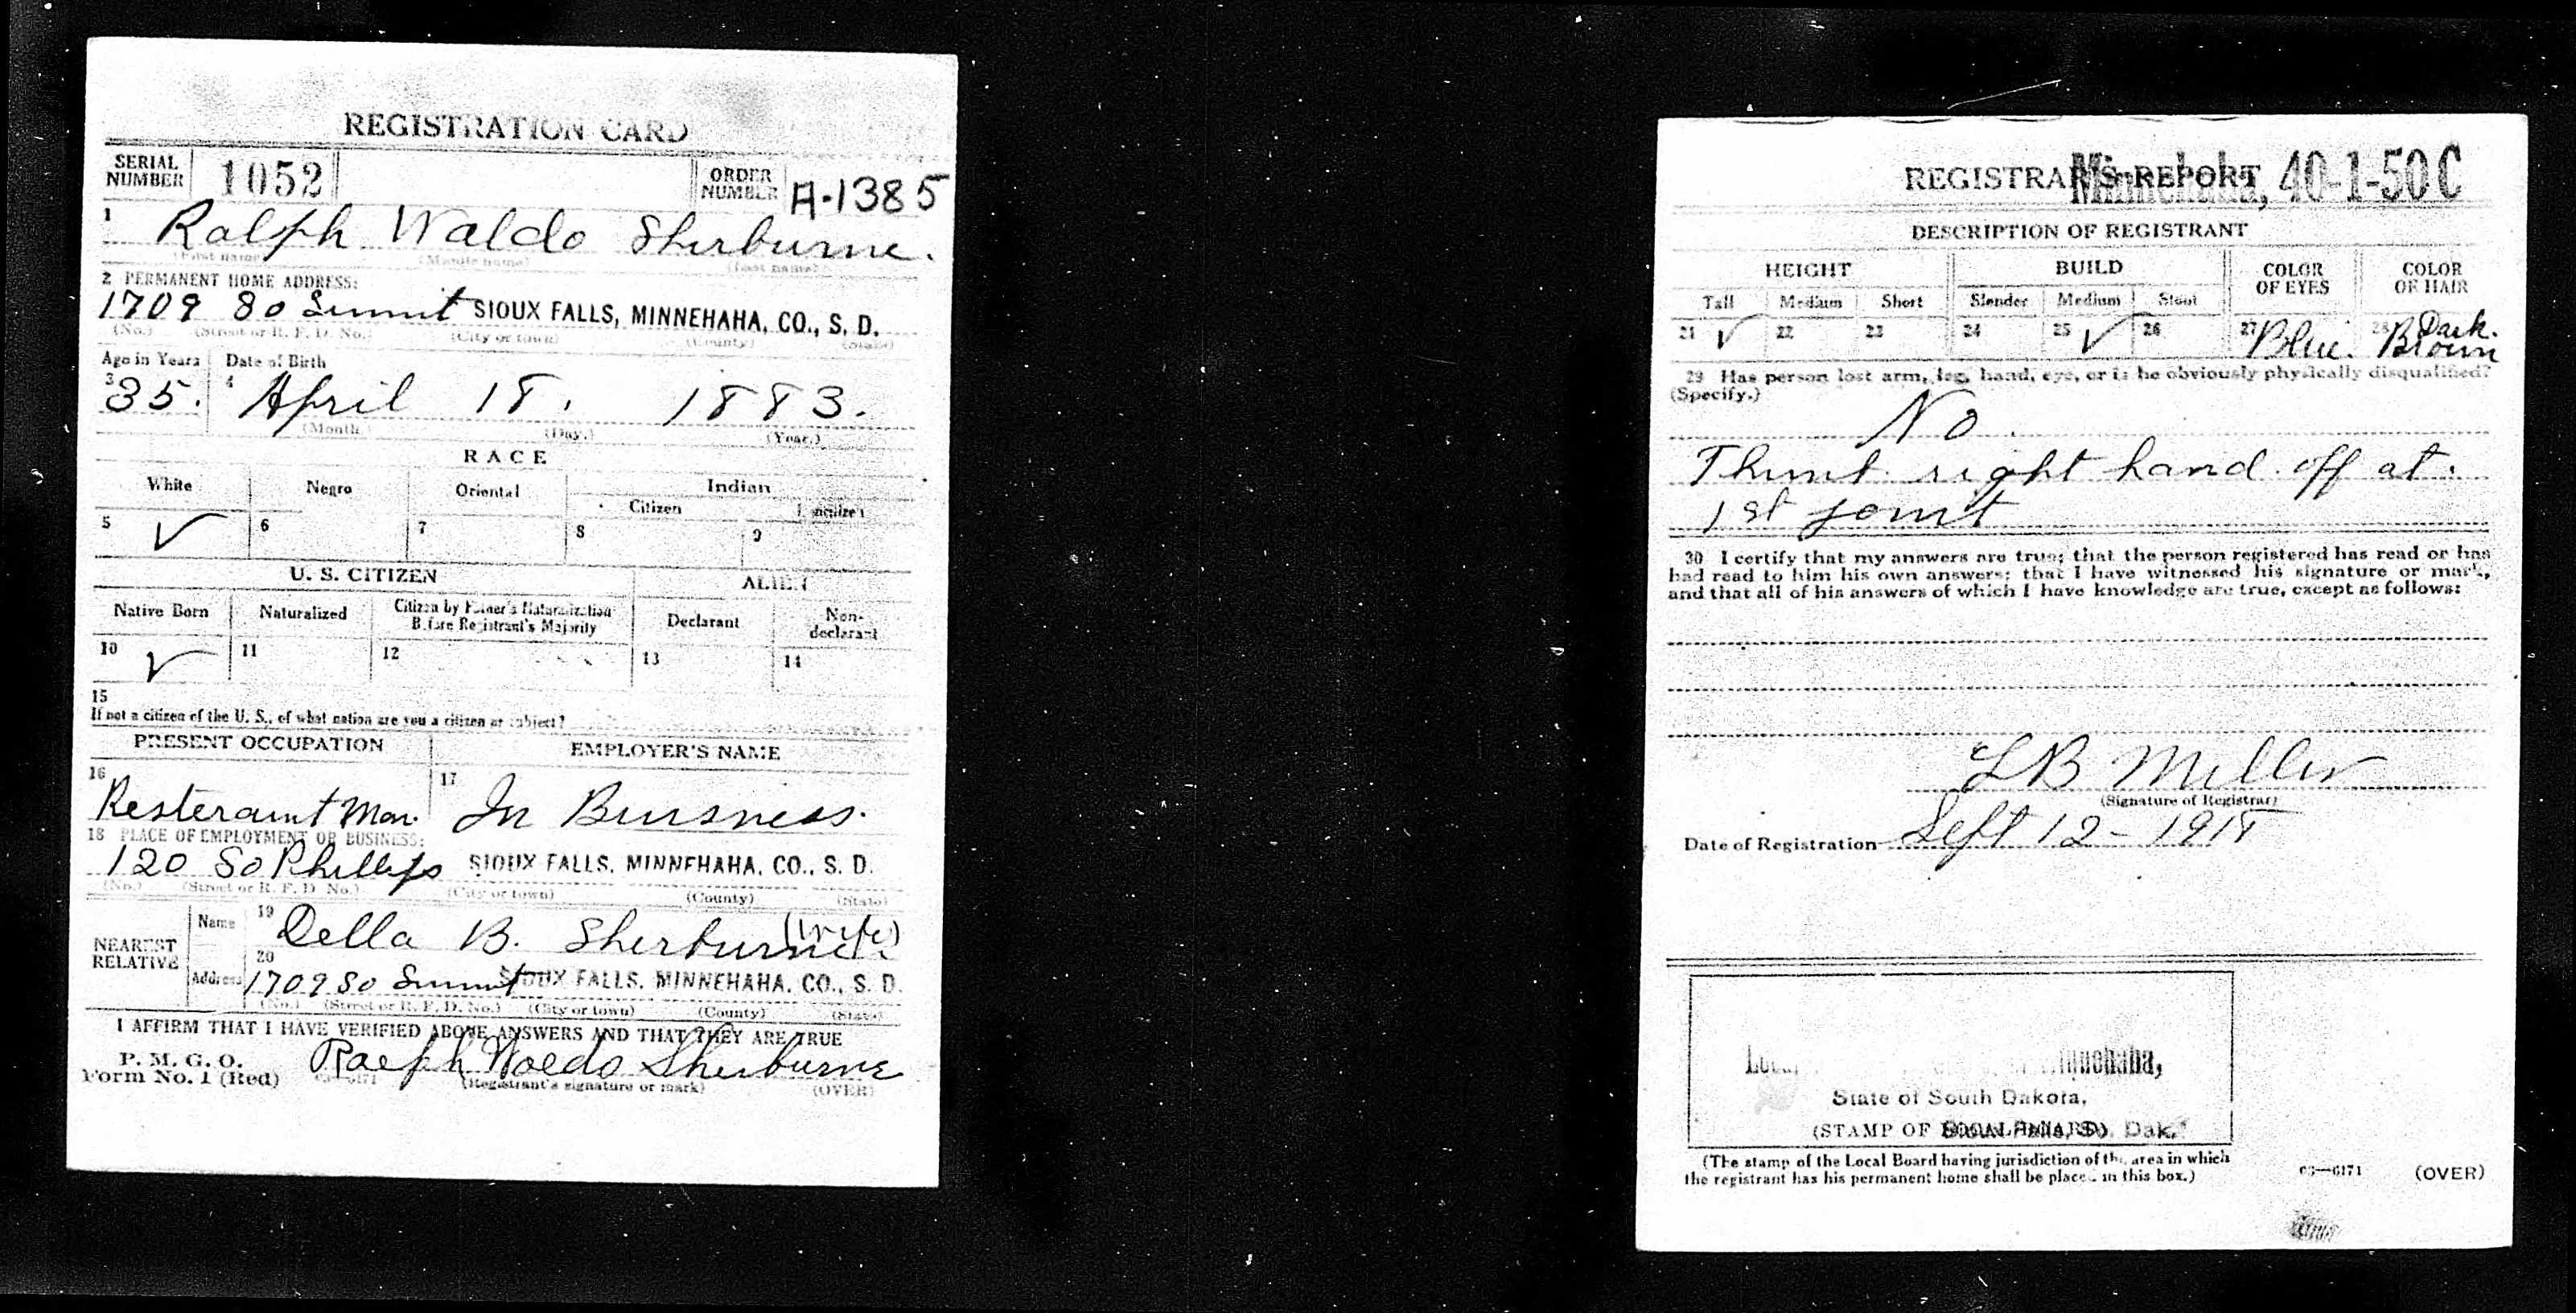 REGISTRATION CARD
SERIAL NUMBER 1052 ORDER NUMBER A-1385
1 Ralph Waldo Sherburne.
(First name) (Middle name) (Last name)
2 PERMANENT HOME ADDRESS:
1709 So Summit SIOUX FALLS, MINNEHAHA, CO., S. D.
(No.) (Street or R. F. D. No.) (City or town) (County) (State)
Age in Years Date of Birth
3 35. 4 April 18, 1883.
(Month.) (Day.) (Year.)
RACE
White Negro Oriental Indian
Citizen
5 ✓ 6 7 8 9
U. S. CITIZEN ALIEN
Native Born Naturalized Citizen by Father's Naturalization Before Registrant's Majority Declarant Non-declarant
10 ✓ 11 12 13 14
15
If not a citizen of the U. S., of what nation are you a citizen or subject?
PRESENT OCCUPATION EMPLOYER'S NAME
16 17
Resteraunt Man. In Buisness.
18 PLACE OF EMPLOYMENT OR BUSINESS:
120 So Phillips SIOUX FALLS, MINNEHAHA, CO., S. D.
(No.) (Street or R. F. D. No.) (City or town) (County) (State)
NEAREST RELATIVE
Name 19 Della B. Sherburne. (Wife)
Address 20 1709 So Summit SIOUX FALLS, MINNEHAHA, CO., S. D.
(No.) (Street or R. F. D. No.) (City or town) (County) (State)
I AFFIRM THAT I HAVE VERIFIED ABOVE ANSWERS AND THAT THEY ARE TRUE
P. M. G. O.
Form No. 1 (Red) Ralph Waldo Sherburne
(Registrant's signature or mark) (OVER)
REGISTRAR'S REPORT Minnehaha, 40-1-50 C
DESCRIPTION OF REGISTRANT
HEIGHT BUILD COLOR OF EYES COLOR OF HAIR
Tall Medium Short Slender Medium Stout
21 ✓ 22 23 24 25 ✓ 26 27 Blue. 28 Dark. Brown
29 Has person lost arm, leg, hand, eye, or is he obviously physically disqualified?
(Specify.)
No.
Thumb right hand off at.
1st joint
30 I certify that my answers are true; that the person registered has read or has
had read to him his own answers; that I have witnessed his signature or mark,
and that all of his answers of which I have knowledge are true, except as follows:
L B Miller
(Signature of Registrar)
Date of Registration Sept 12 - 1918
Minnehaha,
State of South Dakota,
(STAMP OF LOCAL BOARD)
Sioux Falls, So. Dak.
(The stamp of the Local Board having jurisdiction of the area in which
the registrant has his permanent home shall be placed in this box.)
03—6171 (OVER)